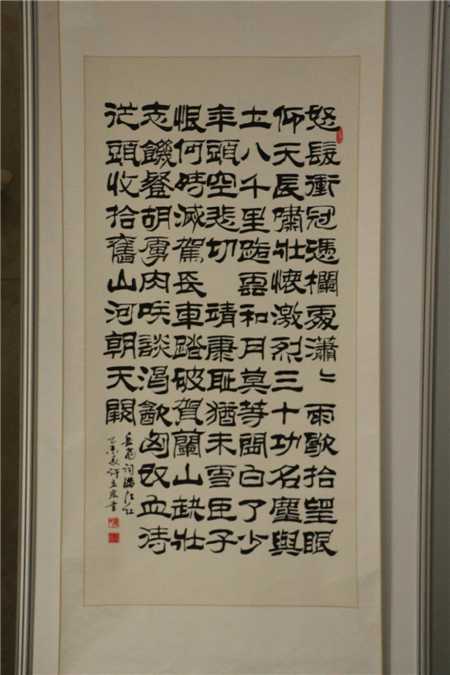 怒髮衝冠憑欄處瀟〻雨歇拾望眼
仰天長嘯壯懷激烈三十功名塵與
土八千里路雲和月莫等閒白了少
年頭空悲切 靖康恥猶未雪臣子
恨何時滅駕長車踏破賀蘭山缺壯
志饑餐胡虜肉笑談渴飲匈奴血待
從頭收拾舊山河朝天闕
岳飛詞滿江紅